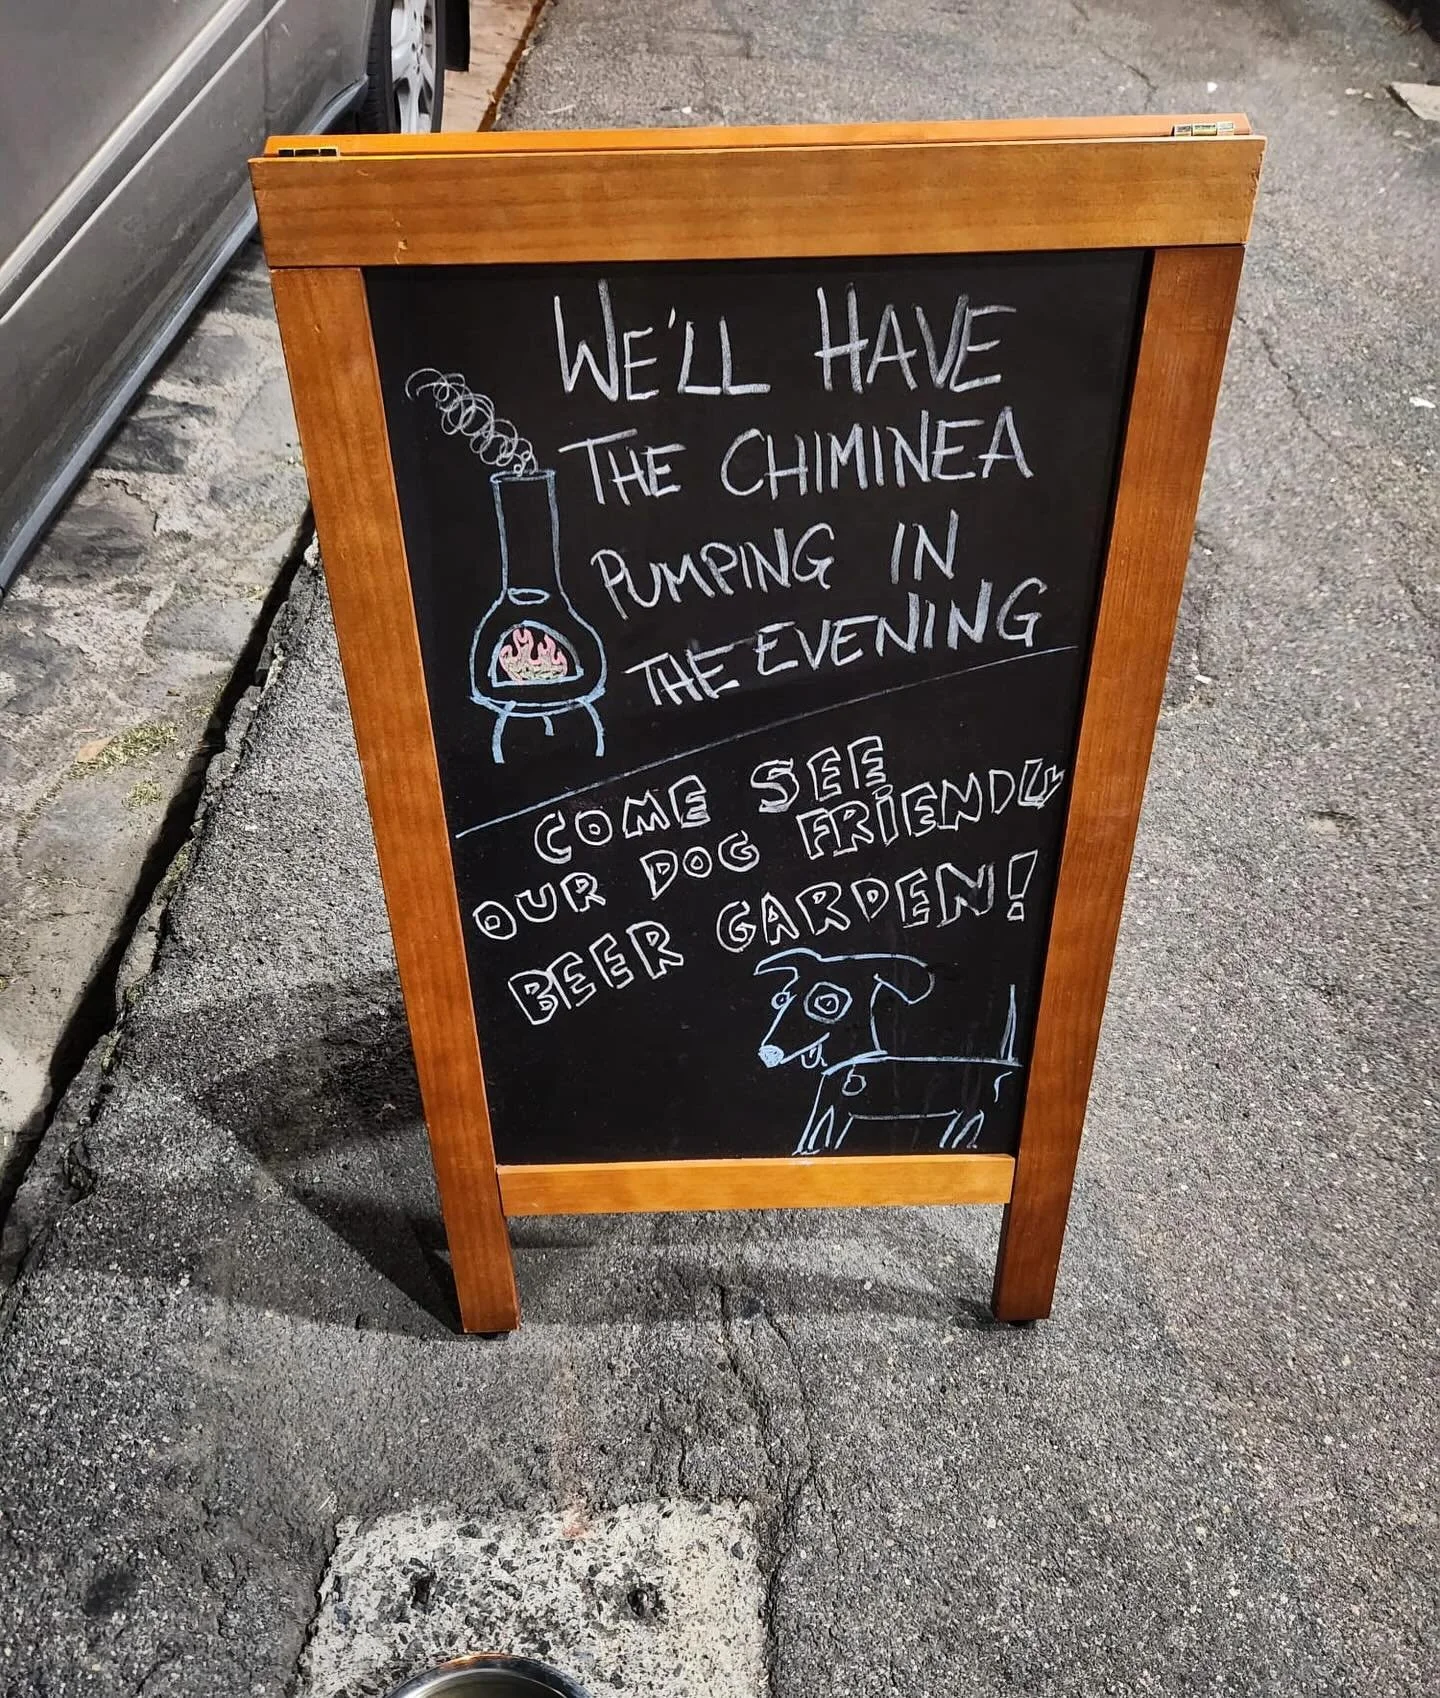 WE'LL HAVE
THE CHIMINEA
PUMPING IN
THE EVENING
COME SEE
OUR DOG FRIENDLY
BEER GARDEN!